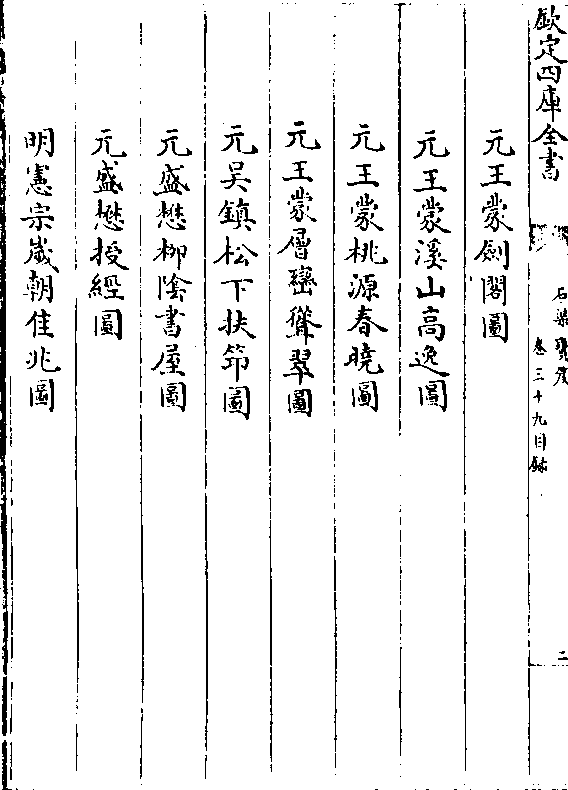 欽定四庫全書
石渠寶笈
卷三十九目録
二
元王蒙劍閣圖
元王蒙溪山高逸圖
元王蒙桃源春曉圖
元王蒙層巒聳翠圖
元吳鎮松下扶笻圖
元盛懋柳陰書屋圖
元盛懋授經圖
明憲宗嵗朝佳兆圖